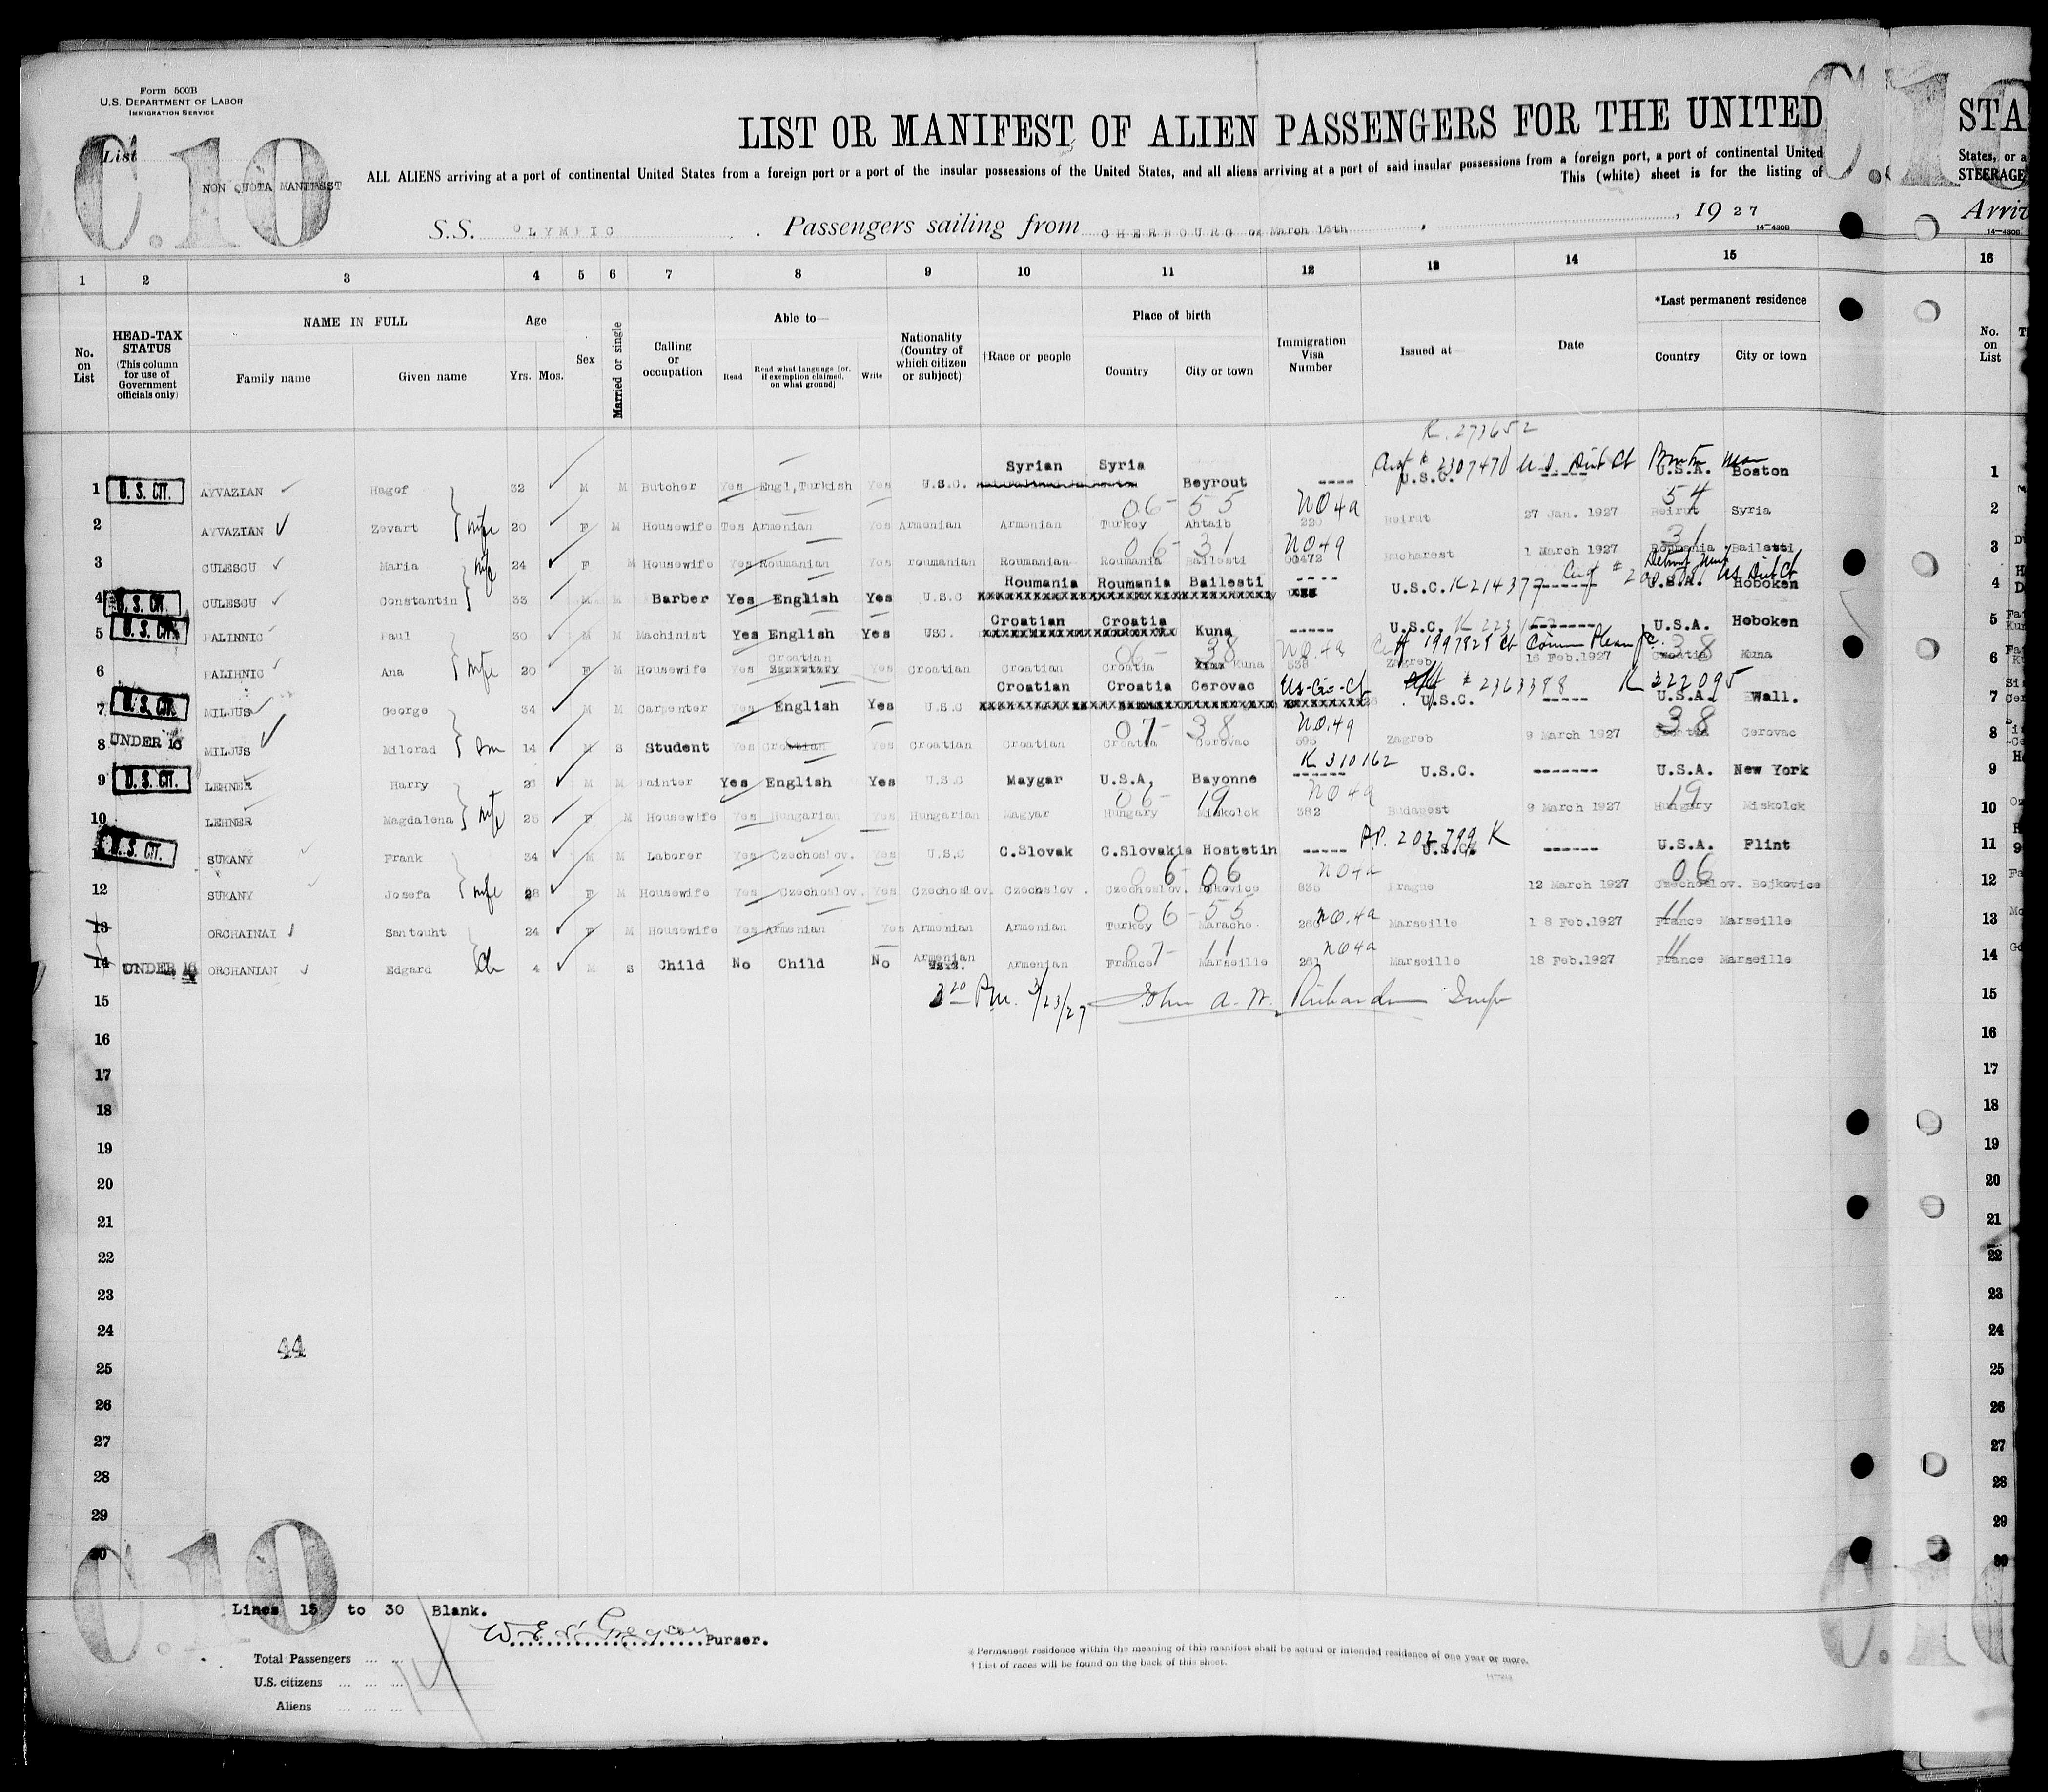 Form 500B
U.S. DEPARTMENT OF LABOR
IMMIGRATION SERVICE
C.10
C.10
List
NON QUOTA MANIFEST
LIST OR MANIFEST OF ALIEN PASSENGERS FOR THE UNITED
STA
ALL ALIENS arriving at a port of continental United States from a foreign port or a port of the insular possessions of the United States, and all aliens arriving at a port of said insular possessions from a foreign port, a port of continental United
States, or a
This (white) sheet is for the listing of
STEERAGE
S.S. OLYMPIC . Passengers sailing from CHERBOURG on March 16th , 19 27
Arriv
14-430B
14-430B
1 2 3 4 5 6 7 8 9 10 11 12 13 14 15 16
No. on List
HEAD-TAX STATUS (This column for use of Government officials only)
NAME IN FULL
Family name Given name
Age
Yrs. Mos.
Sex
Married or single
Calling or occupation
Able to—
Read Read what language [or, if exemption claimed, on what ground] Write
Nationality (Country of which citizen or subject)
†Race or people
Place of birth
Country City or town
Immigration Visa Number
Issued at—
Date
*Last permanent residence
Country City or town
No. on List
K. 273652
Syrian Syria 2307470 U.S. Dist Ct
1 U. S. CIT. AYVAZIAN Hagof 32 M M Butcher Yes Engl,Turkish Yes U.S.C. Beyrout ---- U.S.C. ----- U.S.A. Boston 1
06-55 NO4a 54
2 AYVAZIAN Zevart wife 20 F M Housewife Yes Armenian Yes Armenian Armenian Turkey Ahtaib 220 Beirut 27 Jan. 1927 Beirut Syria 2
06-31 NO4a 31
3 CULESCU Maria wife 24 F M Housewife Yes Roumanian Yes roumanian Roumanian Roumania Bailesti 00472 Bucharest 1 March 1927 Roumania Bailesti 3
Roumania Roumania Bailesti ----
4 U. S. CIT. CULESCU Constantin 33 M M Barber Yes English Yes U.S.C U.S.C. K214377 ------ U.S.A. Hoboken 4
Croatian Croatia
5 U. S. CIT. PALIHNIC Paul 30 M M Machinist Yes English Yes USC. Kuna ----- U.S.C. ------- U.S.A. Hoboken 5
Croatian 06-38 NO.4a 38
6 PALIHNIC Ana wife 20 F M Housewife Yes Yes Croatian Croatian Croatia Kuna 638 Zagreb 16 Feb.1927 Croatia Kuna 6
Croatian Croatia Cerovac # 2363398 K 322095
7 U. S. CIT. MILJUS George 34 M M Carpenter Yes English Yes U.S.C U.S.C. ----- U.S.A. Wall. 7
07-38 NO.4a 38
8 UNDER 16 MILJUS Milorad son 14 M S Student Yes Croatian Yes Croatian Croatian Croatia Cerovac 595 Zagreb 9 March 1927 Croatia Cerovac 8
K 310162
9 U. S. CIT. LEHNER Harry M M Painter Yes English Yes U.S.C Maygar U.S.A, Bayonne ------ U.S.C. ------- U.S.A. New York 9
06-19 NO4a 19
10 LEHNER Magdalena wife 25 F M Housewife Yes Hungarian Yes Hungarian Magyar Hungary Miskolck 382 Budapest 9 March 1927 Hungary Miskolck 10
PP. 202799 K
11 U. S. CIT. SUKANY Frank 34 M M Laborer Yes Czechoslov. Yes U.S.C C.Slovak C.Slovakia Hostetin ----- U.S.C. ------ U.S.A. Flint 11
06-06 NO4a 06
12 SUKANY Josefa wife 28 F M Housewife Yes Czechoslov. Yes Czechoslov. Czechslov. Czechoslov. Bojkovice 835 Prague 12 March 1927 Czechoslov. Bojkovice 12
06-55 NO.4a 11
13 ORCHAINAI Santouht 24 F M Housewife Yes Armenian Yes Armenian Armenian Turkey Marache 260 Marseille 18 Feb.1927 France Marseille 13
07-11 NO4a 11
14 UNDER 16 ORCHANIAN Edgard Ch 4 M S Child No Child No Armenian Armenian France Marseille 261 Marseille 18 Feb.1927 France Marseille 14
15 3 20 PM. 3/23/27 John A. W. Richardson Insp 15
16 16
17 17
18 18
19 19
20 20
21 21
22 22
23 23
24 44 24
25 25
26 26
27 27
28 28
29 29
30 30
C.10
C.10
Lines 15 to 30 Blank.
W. E. Gregson Purser.
Total Passengers
U.S. citizens
Aliens
14
* Permanent residence within the meaning of this manifest shall be actual or intended residence of one year or more.
† List of races will be found on the back of this sheet.